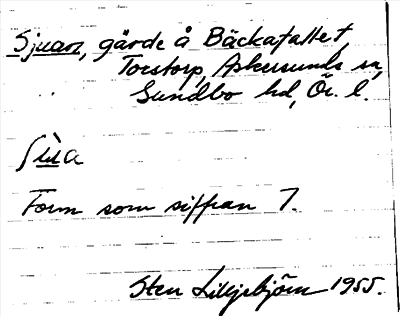 Sjuan, gärde å Bäckafallet,
Torstorp, Askersunds sn,
Sundbo hd, Ör. l.
ʃùa
Form som siffran 7.
Sten Liljebjörn 1955.